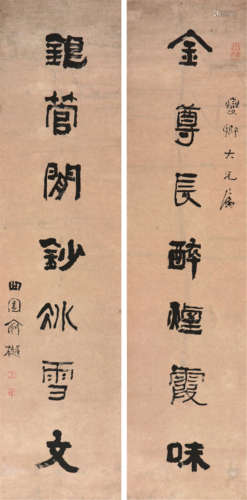 金尊長醉煙霞味
燮卿大兄屬
銀管閒鈔冰雪文
曲園俞樾